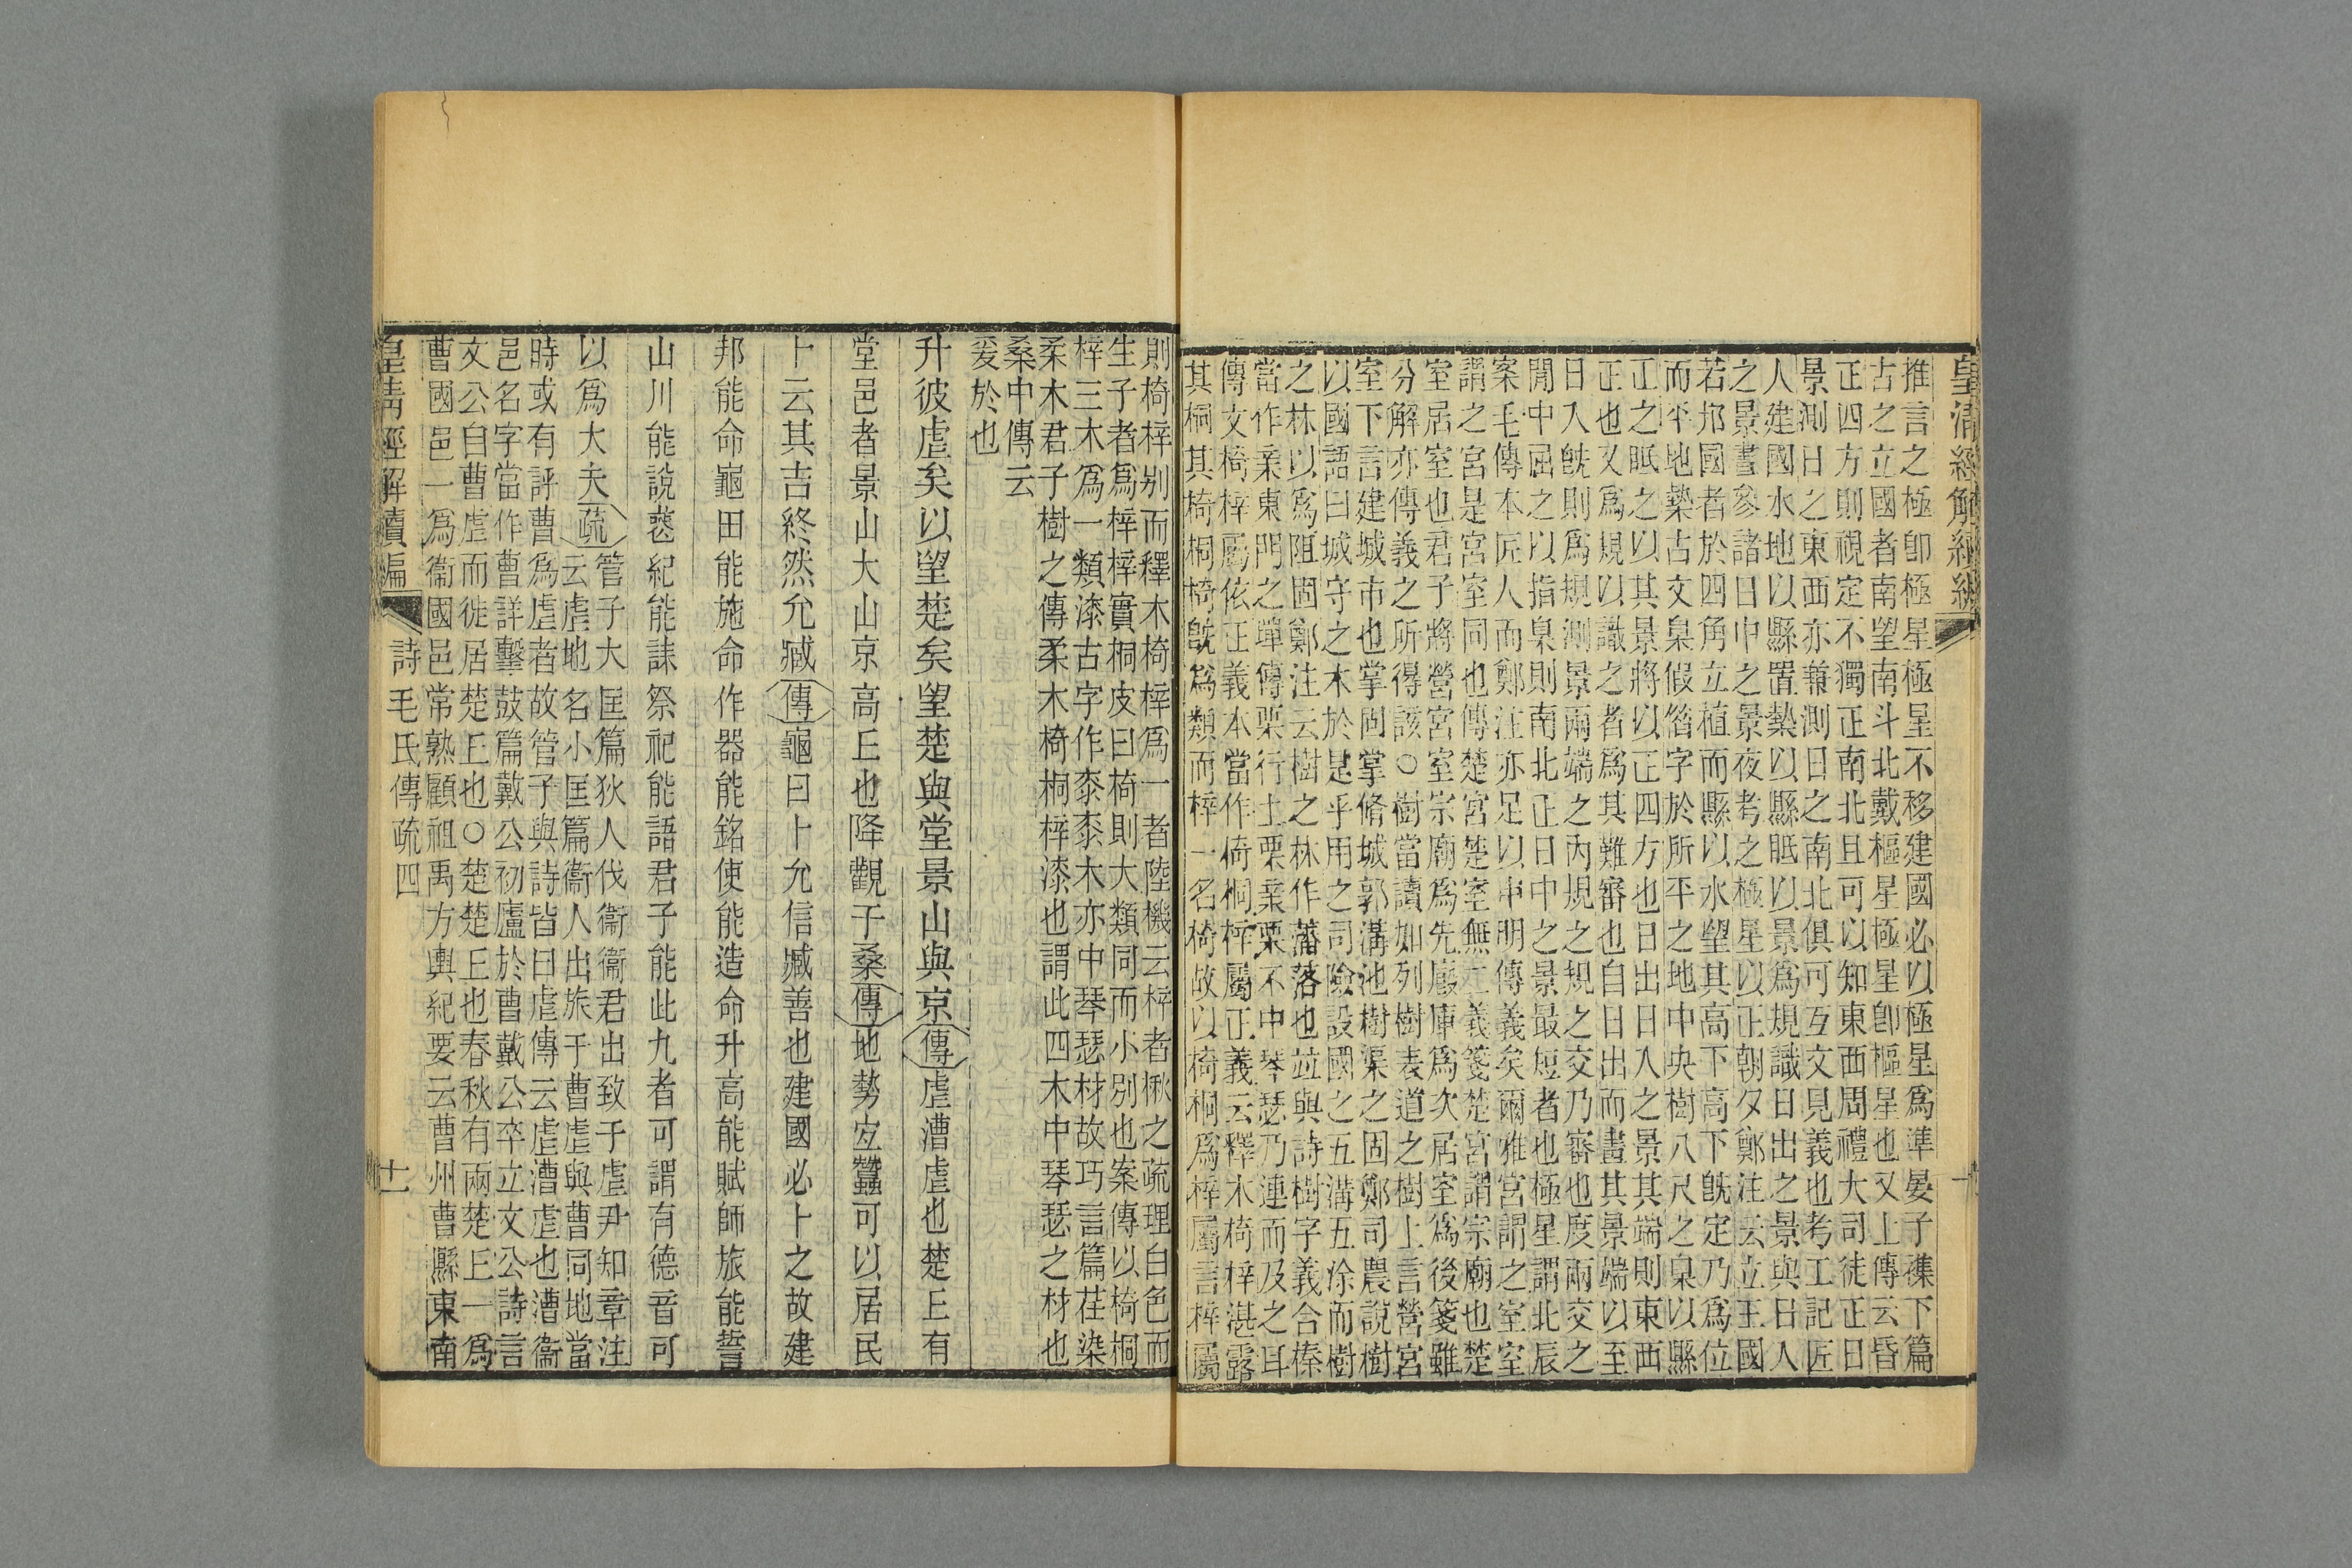 推言之極卽極星極星不移建國必以極星爲準晏子襍下篇
古之立國者南望南斗北戴樞星極星卽樞星也又上傳云昏
正四方則視定不獨正南北且可以知東西周禮大司徒正日
景測日之東西亦兼測日之南北俱可互文見義也考工記匠
人建國水地以縣置槷以縣眡以景爲規識日出之景與日人
之景晝參諸日中之景夜考之極星以正朝夕鄭注云立王國
若邦國者於四角立植而縣以水望其高下高下旣定乃爲位
而平地槷古文臬假簪字於所平之地中央樹八尺之臬以縣
正之眡之以其景將以正四方也日出日入之景其端則東西
正也又爲規以識之者爲其難審也自日出而畫其景端以至
日入旣則爲規測景兩端之內規之規之交乃審也度兩交之
閒中屈之以指臬則南北正日中之景最短者也極星謂北辰
案毛傳本匠人而鄭注亦足以申明傳義矣爾雅宮謂之室室
謂之宮是宮室同也傳楚宮楚室無二義箋楚宮謂宗廟也楚
室居室也君子將營宮室宗廟爲先廄庫爲次居室爲後箋雖
分解亦傳義之所得該○樹當讀如列樹表道之樹上言營宮
室下言建城市也掌固掌脩城郭溝池樹渠之固鄭司農說樹
以國語曰城守之木於是乎用之司險設國之五溝五涂而樹
之林以爲阻固鄭注云樹之林作藩落也竝與詩樹字義合榛
當作亲東門之墠傳栗行上栗亲栗不中琴瑟乃連而及之耳
傳文椅梓屬依正義本當作倚桐梓屬正義云釋木椅梓湛露
其桐其椅桐椅旣爲類而梓一名椅故以椅桐爲梓屬言梓屬
則椅梓别而釋木椅梓爲一者陸機云梓者楸之疏理白色而
生子者爲梓梓實桐皮曰椅則大類同而小別也案傳以椅桐
梓三木爲一類漆古字作桼桼木亦中琴瑟材故巧言篇荏染
柔木君子樹之傳柔木椅桐梓漆也謂此四木中琴瑟之材也
桑中傳云
爰於也
升彼虛矣以望楚矣望楚與堂景山與京傳虛漕虛也楚丘有
堂邑者景山大山京高丘也降觀于桑傳地勢宜蠶可以居民
卜云其吉終然允臧傳龜曰卜允信臧善也建國必卜之故建
邦能命龜田能施命作器能銘使能造命升高能賦師旅能誓
山川能說喪紀能誄祭祀能語君子能此九者可謂有德音可
以爲大夫疏管子大匡篇狄人伐衞衞君出致于虛尹知章注
云虛地名小匡篇衞人出旅于曹虛與曹同地當
時或有評曹爲虛者故管子與詩皆曰虛傳云虛漕虛也漕衞
邑名字當作曹詳擊鼓篇戴公初廬於曹戴公卒立文公詩言
文公自曹虛而徙居楚丘也○楚楚丘也春秋有兩楚丘一爲
曹國邑一爲衞國邑常熟顧祖禹方輿紀要云曹州曹縣東南
皇清經解續編
詩毛氏傳疏四
十一